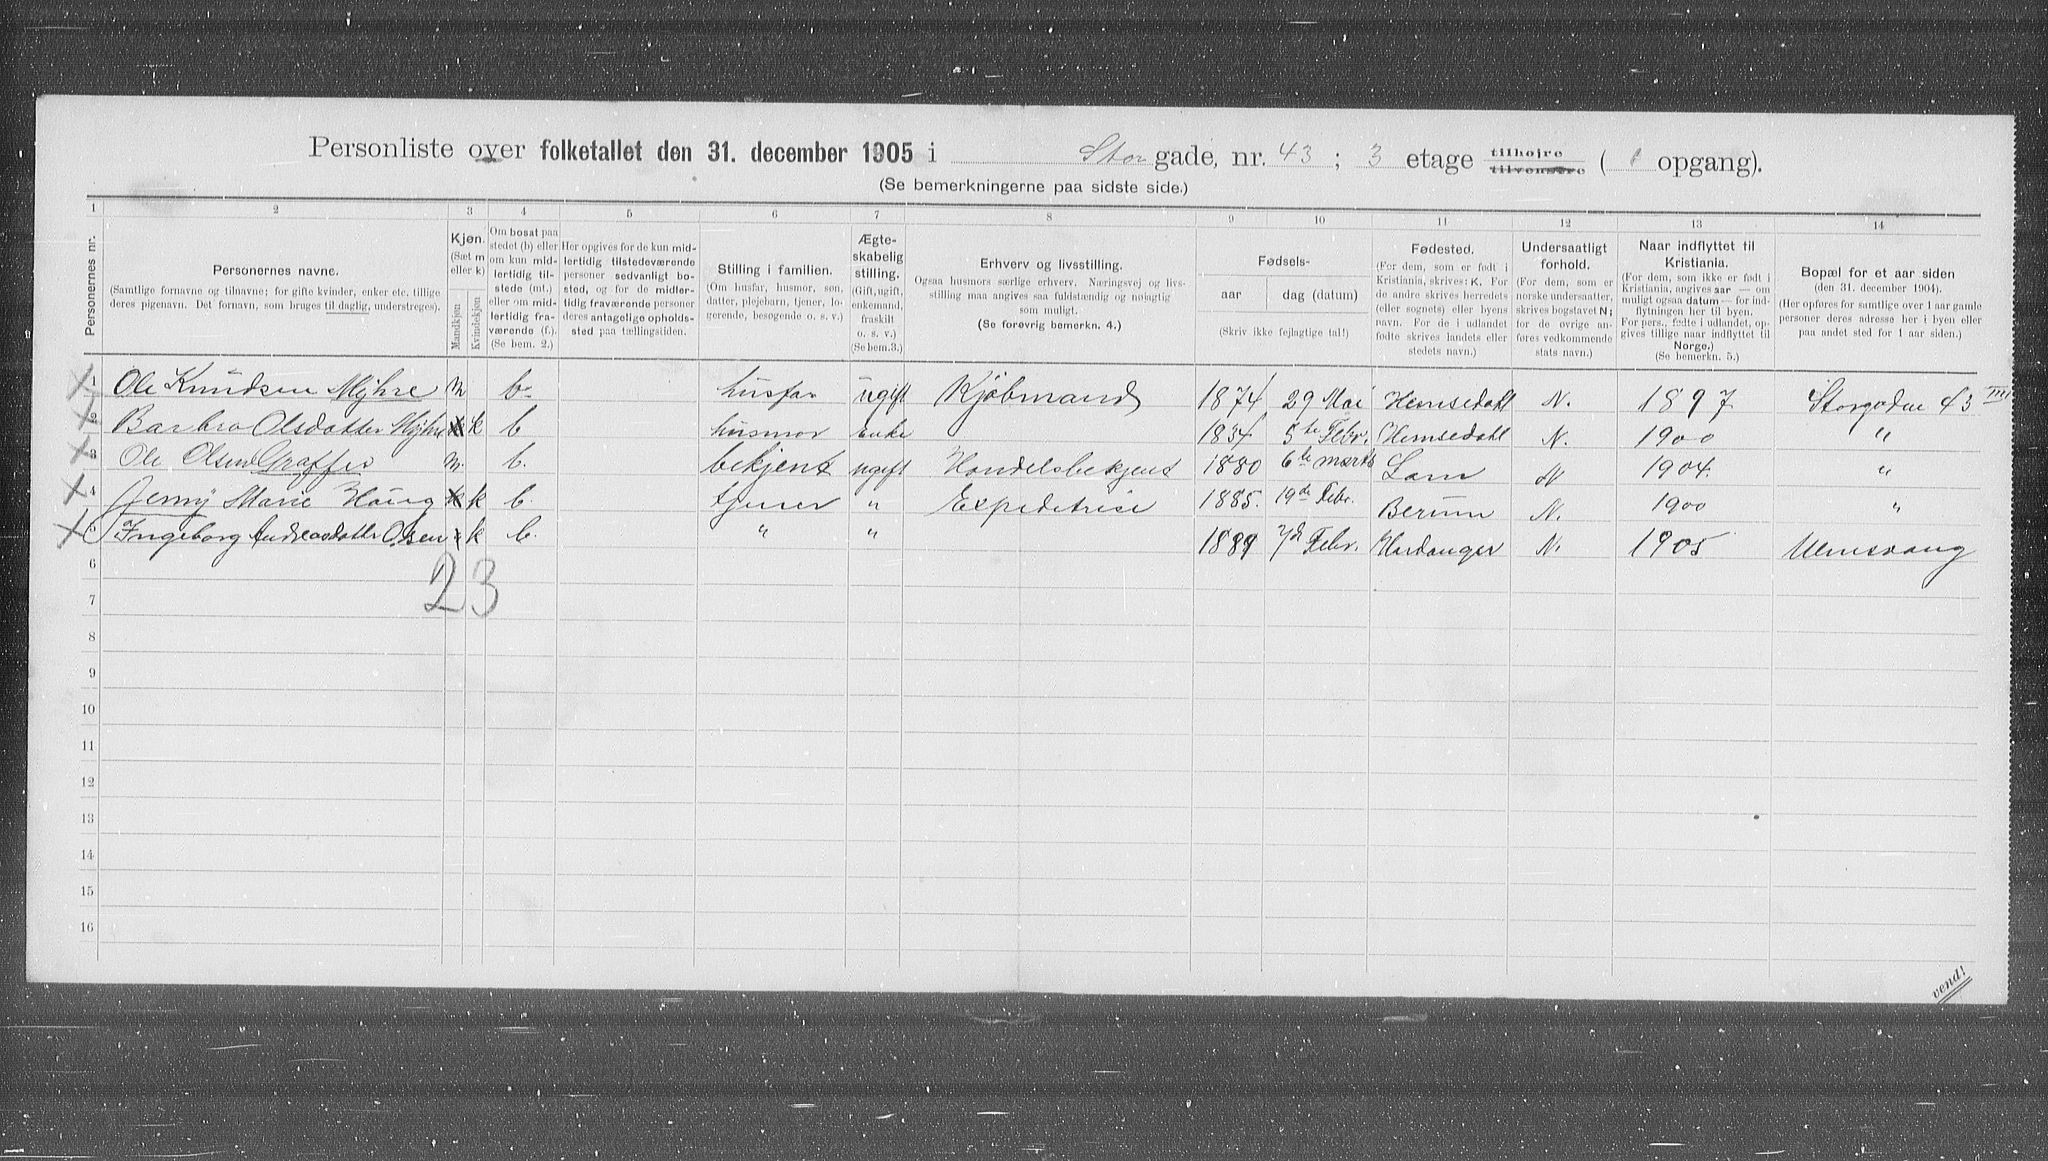 Personliste over folketallet den 31. december 1905 i Stor gade, nr. 43 ; 3 etage tilhøjre tilvenstre ( 1 opgang).
(Se bemerkningerne paa sidste side.)
1 2 3 4 5 6 7 8 9 10 11 12 13 14
Personernes nr.
Personernes navne.
(Samtlige fornavne og tilnavne; for gifte kvinder, enker etc. tillige
deres pigenavn. Det fornavn, som bruges til daglig, understreges).
Kjøn.
(Sæt m
eller k)
Mandkjøn
Kvindekjøn
Om bosat paa
stedet (b) eller
om kun mid-
lertidig til-
stede (mt.)
eller om mid-
lertidig fra-
værende (f.).
(Se bem. 2.)
Her opgives for de kun mid-
lertidig tilstedeværende
personer sedvanligt bo-
sted, og for de midler-
tidig fraværende personer
deres antagelige opholds-
sted paa tællingstiden.
Stilling i familien.
(Om husfar, husmor, søn,
datter, plejebarn, tjener, lo-
gerende, besøgende o. s. v.)
Ægte-
skabelig
stilling.
(Gift, ugift,
enkemand,
fraskilt
o. s. v.)
(Se bem.3.)
Erhverv og livsstilling.
Ogsaa husmors særlige erhverv. Næringsvej og livs-
stilling maa angives saa fuldstændig og nøigtig
som muligt.
(Se forøvrig bemerkn. 4.)
Fødsels-
aar
dag (datum)
(Skriv ikke fejlagtige tal!)
Fødested.
(For dem, som er født i
Kristiania, skrives: K. For
de andre skrives herredets
(eller sognets) eller byens
navn. For de i udlandet
fødte skrives landets eller
stedets navn.)
Undersaatligt
forhold.
(For dem, som er
norske undersaatter,
skrives bogstavet N;
for de øvrige an-
føres vedkommende
stats navn.)
Naar indflyttet til
Kristiania.
(For dem, som ikke er født i
Kristiania, angives aar — om
muligt ogsaa datum — for ind-
flytningen her til byen.
For pers., fødte i udlandet, op-
gives tillige naar indflyttet til
Norge.)
(Se bemerkn. 5.)
Bopæl for et aar siden
(den 31. december 1904).
(Her opføres for samtlige over 1 aar gamle
personer deres adresse her i byen eller
paa andet sted for 1 aar siden.)
1 Ole Knudsen Myhre m b. husfar ugift Kjøbmand 1874 29 Mai Hemsedahl N. 1897 Storgaden 43 III
2 Barbro Olsdatter Myhre k b husmor Enke 1834 5te Febr. Hemsedahl N. 1900 "
3 Ole Olsen Graffer m. b. bekjent ugift Handelsbetjent 1880 6te marts Lom N 1904. "
4 Jenny Marie Haug k b. tjener " Expeditrise 1885. 19de Febr. Berum N. 1900 "
5 Ingeborg Andreasdatter Olsen k b. " " 1889 7de Febr. Hardanger N. 1905 Ulensvang
6
23
7
8
9
10
11
12
13
14
15
16
vend!